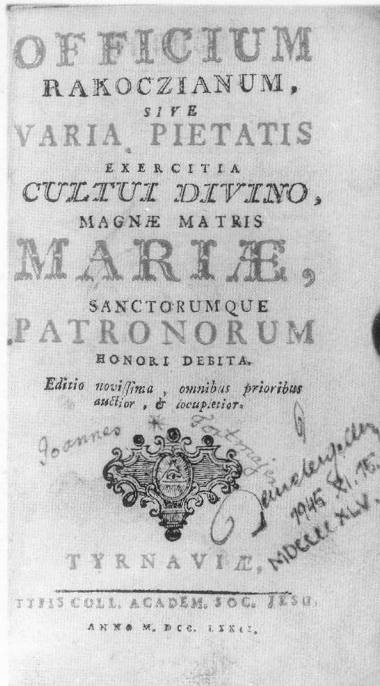 OFFICIUM
RAKOCZIANUM,
SIVE
VARIA PIETATIS
EXERCITIA
CULTUI DIVINO,
MAGNÆ MATRIS
MARIÆ,
SANCTORUMQUE
PATRONORUM
HONORI DEBITA.
Editio novissima, omnibus prioribus
auctior, & locupletior.
Joannes
1945 XI. 15.
TYRNAVIÆ,
TYPIS COLL. ACADEM. SOC. JESU,
ANNO M. DCC.